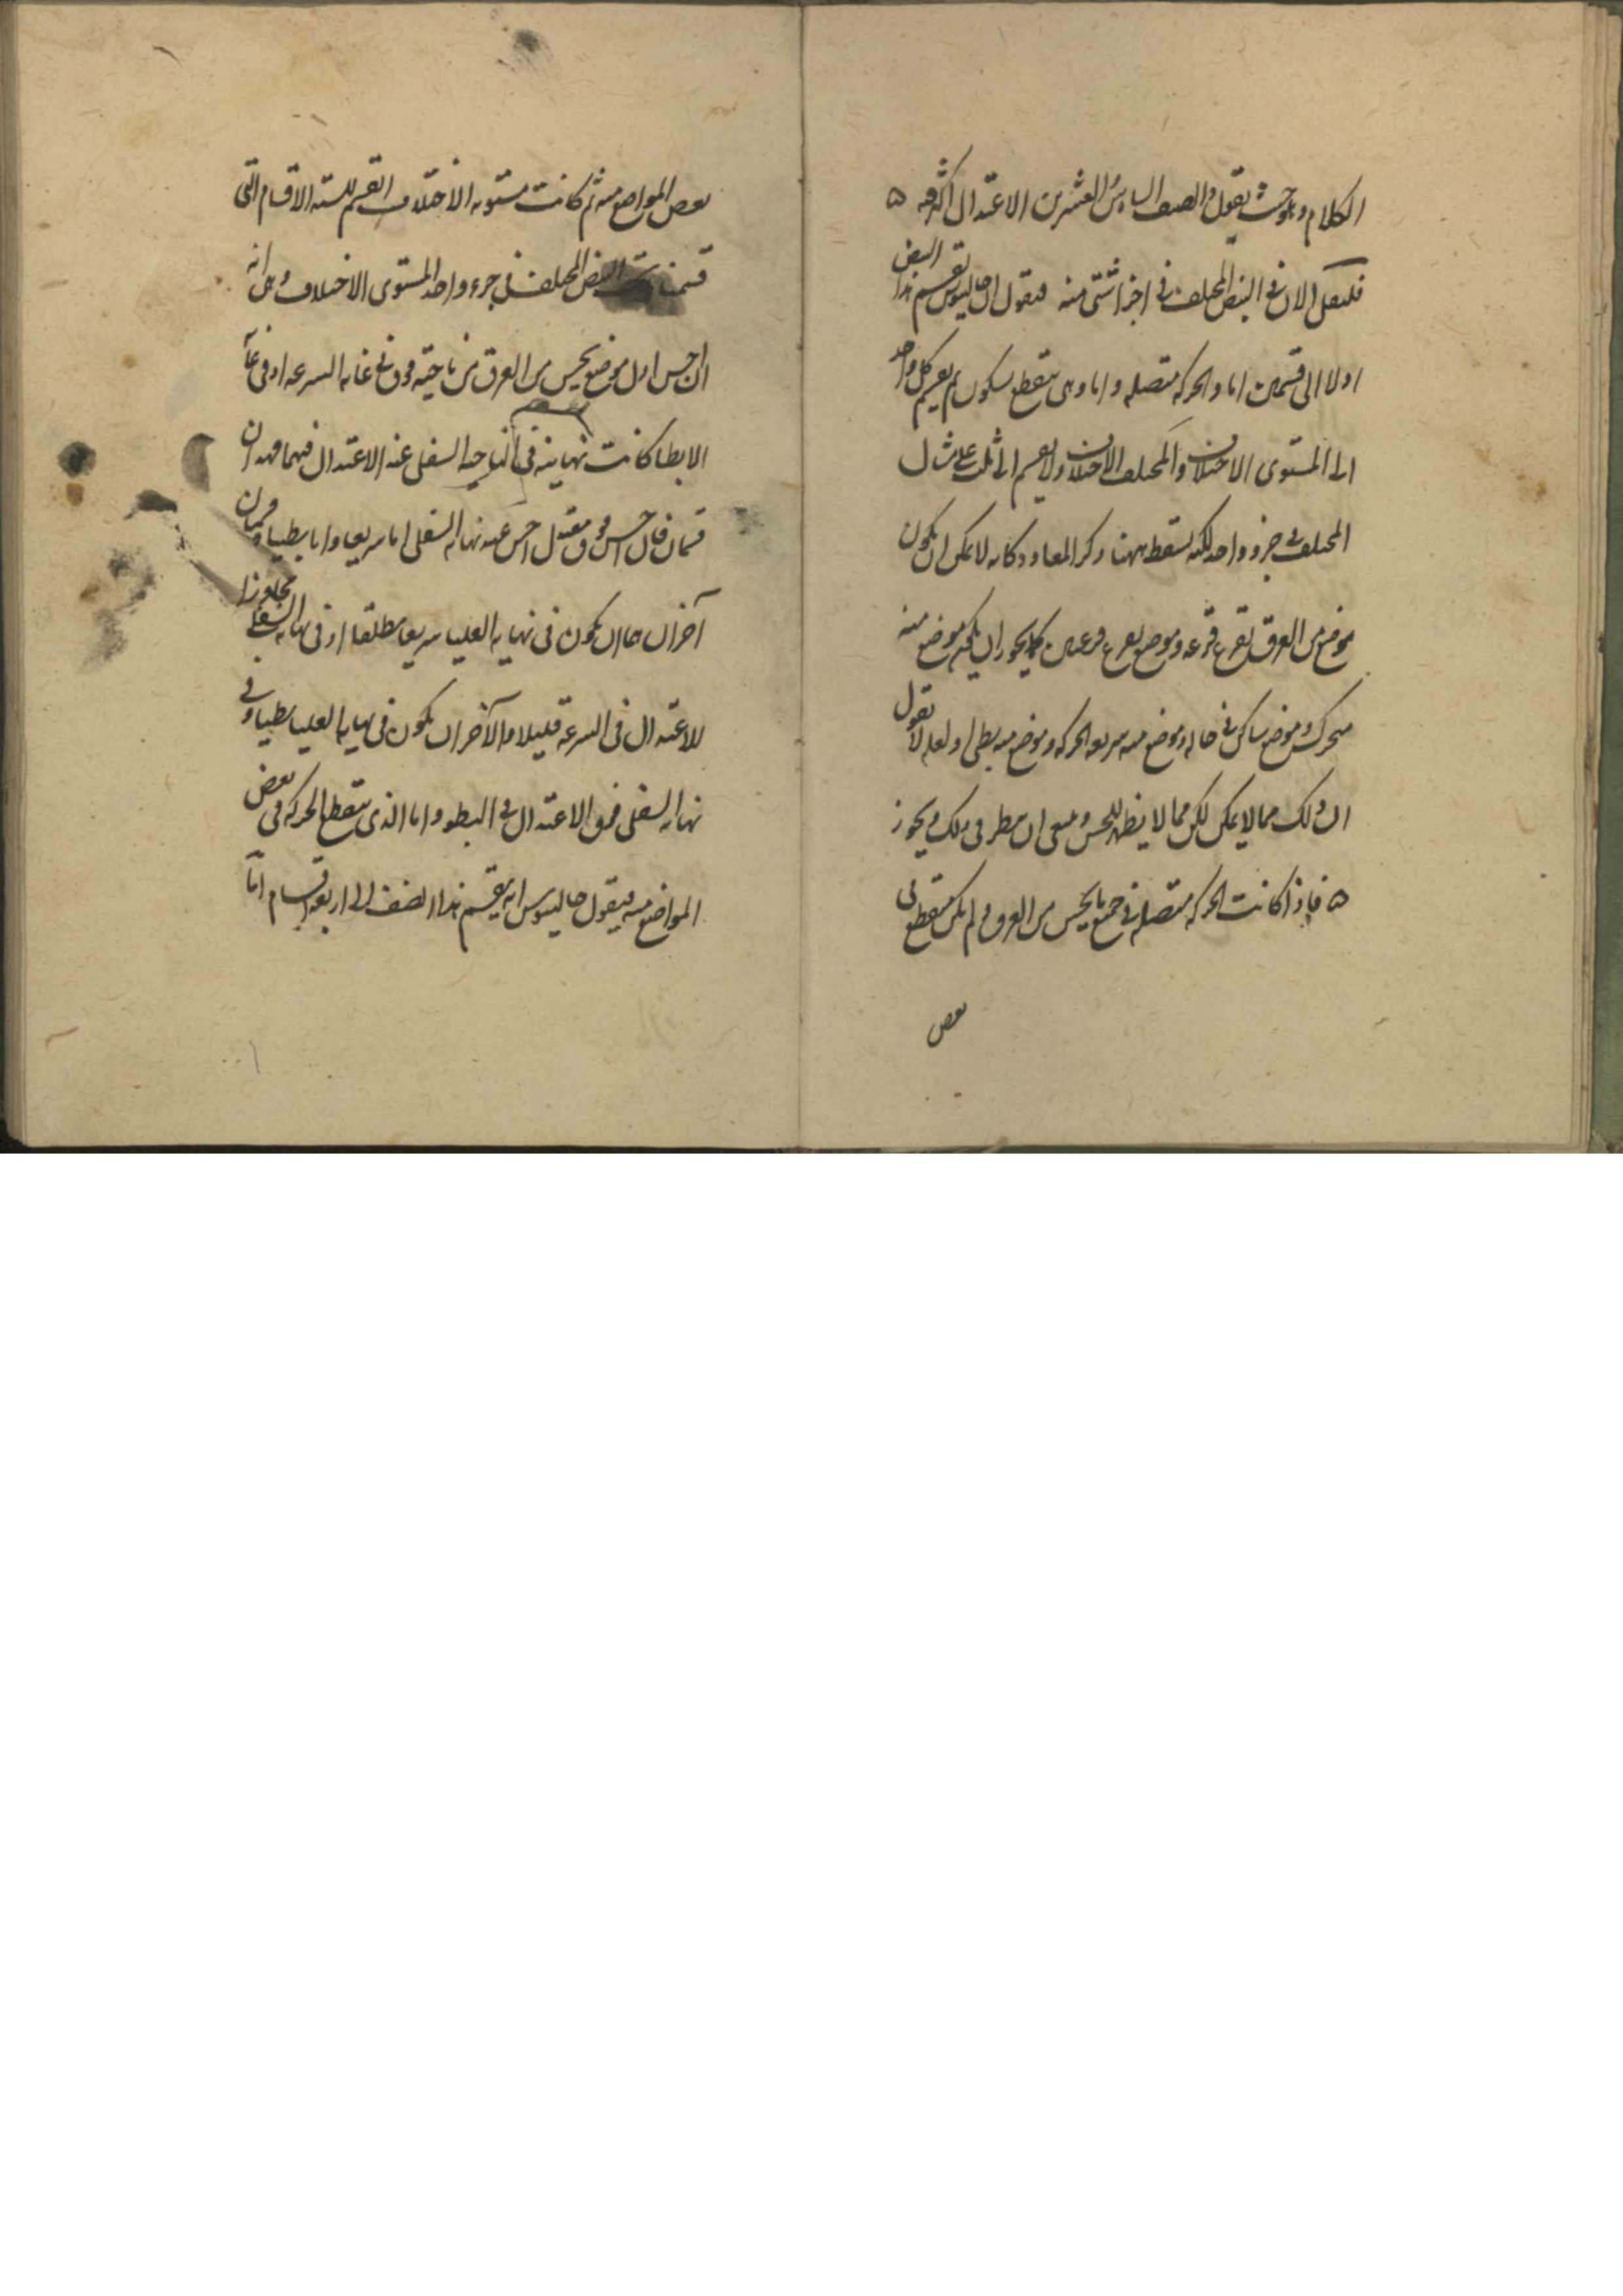 الكلام وهو حيث يقول والصنف السادس والعشرين الاعتدال اكثر فيه ه
فلنقل الان في النبض المختلف في اجزا شتى منه فنقول ان جالينوس يقسم هذا النبض
اولا الى قسمين اما والحركة متصله واما وهى تنقطع بسكون ثم يقسم كل واحد
الى المستوى الاختلاف والمختلف الاختلاف ولا يقسم الى ثلث على مثال
المختلف في جزو واحد لكنه يسقط ههنا ذكر المعاود كانه لا يمكن ان يكون
موضع من العرق يقرع قرعه وموضع يقرع قرعتين كما يجوز ان يكون موضع منه
متحرك وموضع ساكن في حاله وموضع منه سريع الحركه وموضع منه بطى ولعله لا نقول
ان ذلك مما لا يمكن لكن مما لا يظهر للحس وينبغى ان ينظر فى ذلك ويجوز
ه فاذا كانت الحركه متصله في جميع ما يحس من العرق ولم يكن منقطع فى
بعض
بعض المواضع منه ثم كانت مستويه الاختلاف انقسم للسته الاقسام التى
قسمنا النبض المختلف في جزء واحد المستوى الاختلاف وهى انه
ان احس اول موضع يحس من العرق من ناحيته فوق في غايه السرعه او في غاية
الابطا كانت نهايته في الناحيه السفلى عند الاعتدال فيهما فهذان
قسمان فان احس فوق معتدل احس عند نهايه السفلى اما سريعا واما بطيا وقسمان
آخران هما ان يكون في نهايه العليا سريعا مطلقا او في نهايه السفلى مجاوزا
للاعتدال في السرعة قليلا والآخر ان يكون في نهايه العليا بطيا وفي
نهايه السفلى فوق الاعتدال في البطو واما الذى تنقطع الحركه في بعض
المواضع منه فيقول جالينوس انه يقسم هذا الصنف الى اربعه اقسام اما